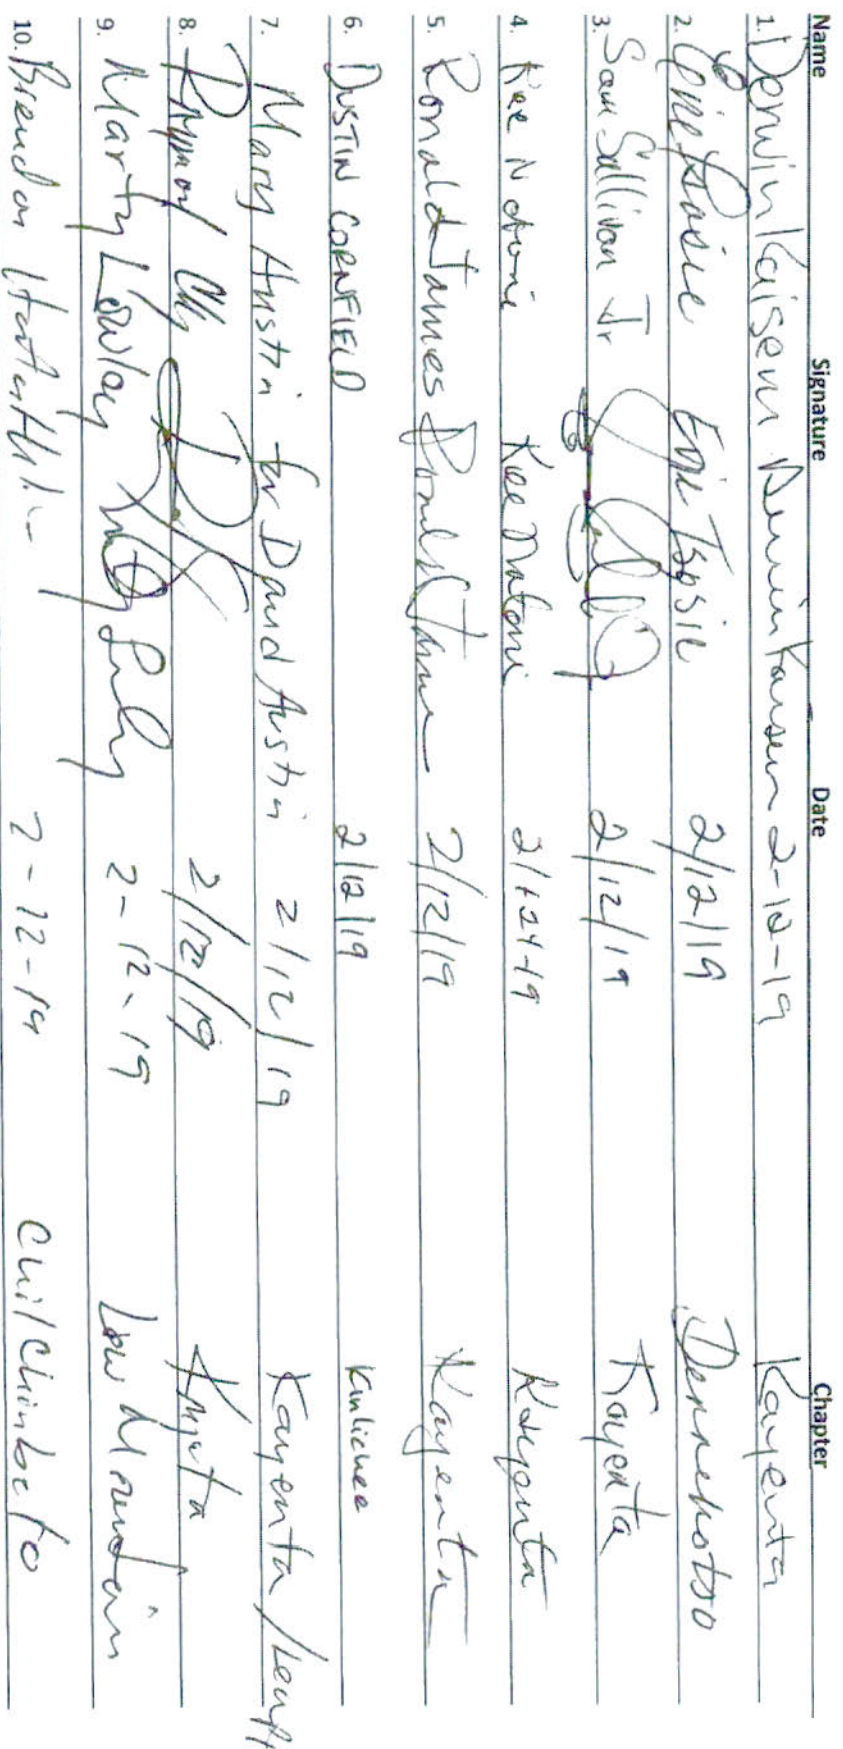 Name Signature Date Chapter
1. Derwin Kaisen Derwin Kaisen 2-12-19 Kayenta
2. Eric Tsosie Eric Tsosie 2/12/19 Dennehotso
3. Sam Sullivan Jr 2/12/19 Kayenta
4. Kee Natoni Kee Natoni Kayenta
5. Ronald James Ronald James 2/12/19 Kayenta
6. DUSTIN CORNFIELD 2/12/19 Kinlichee
7. Mary Austin for David Austin 2/12/19 Kayenta /
8. 2/12/19
9. Marty Lowley 2-12-19 Low Mountain
10. 2-12-19 Chilchinbeto